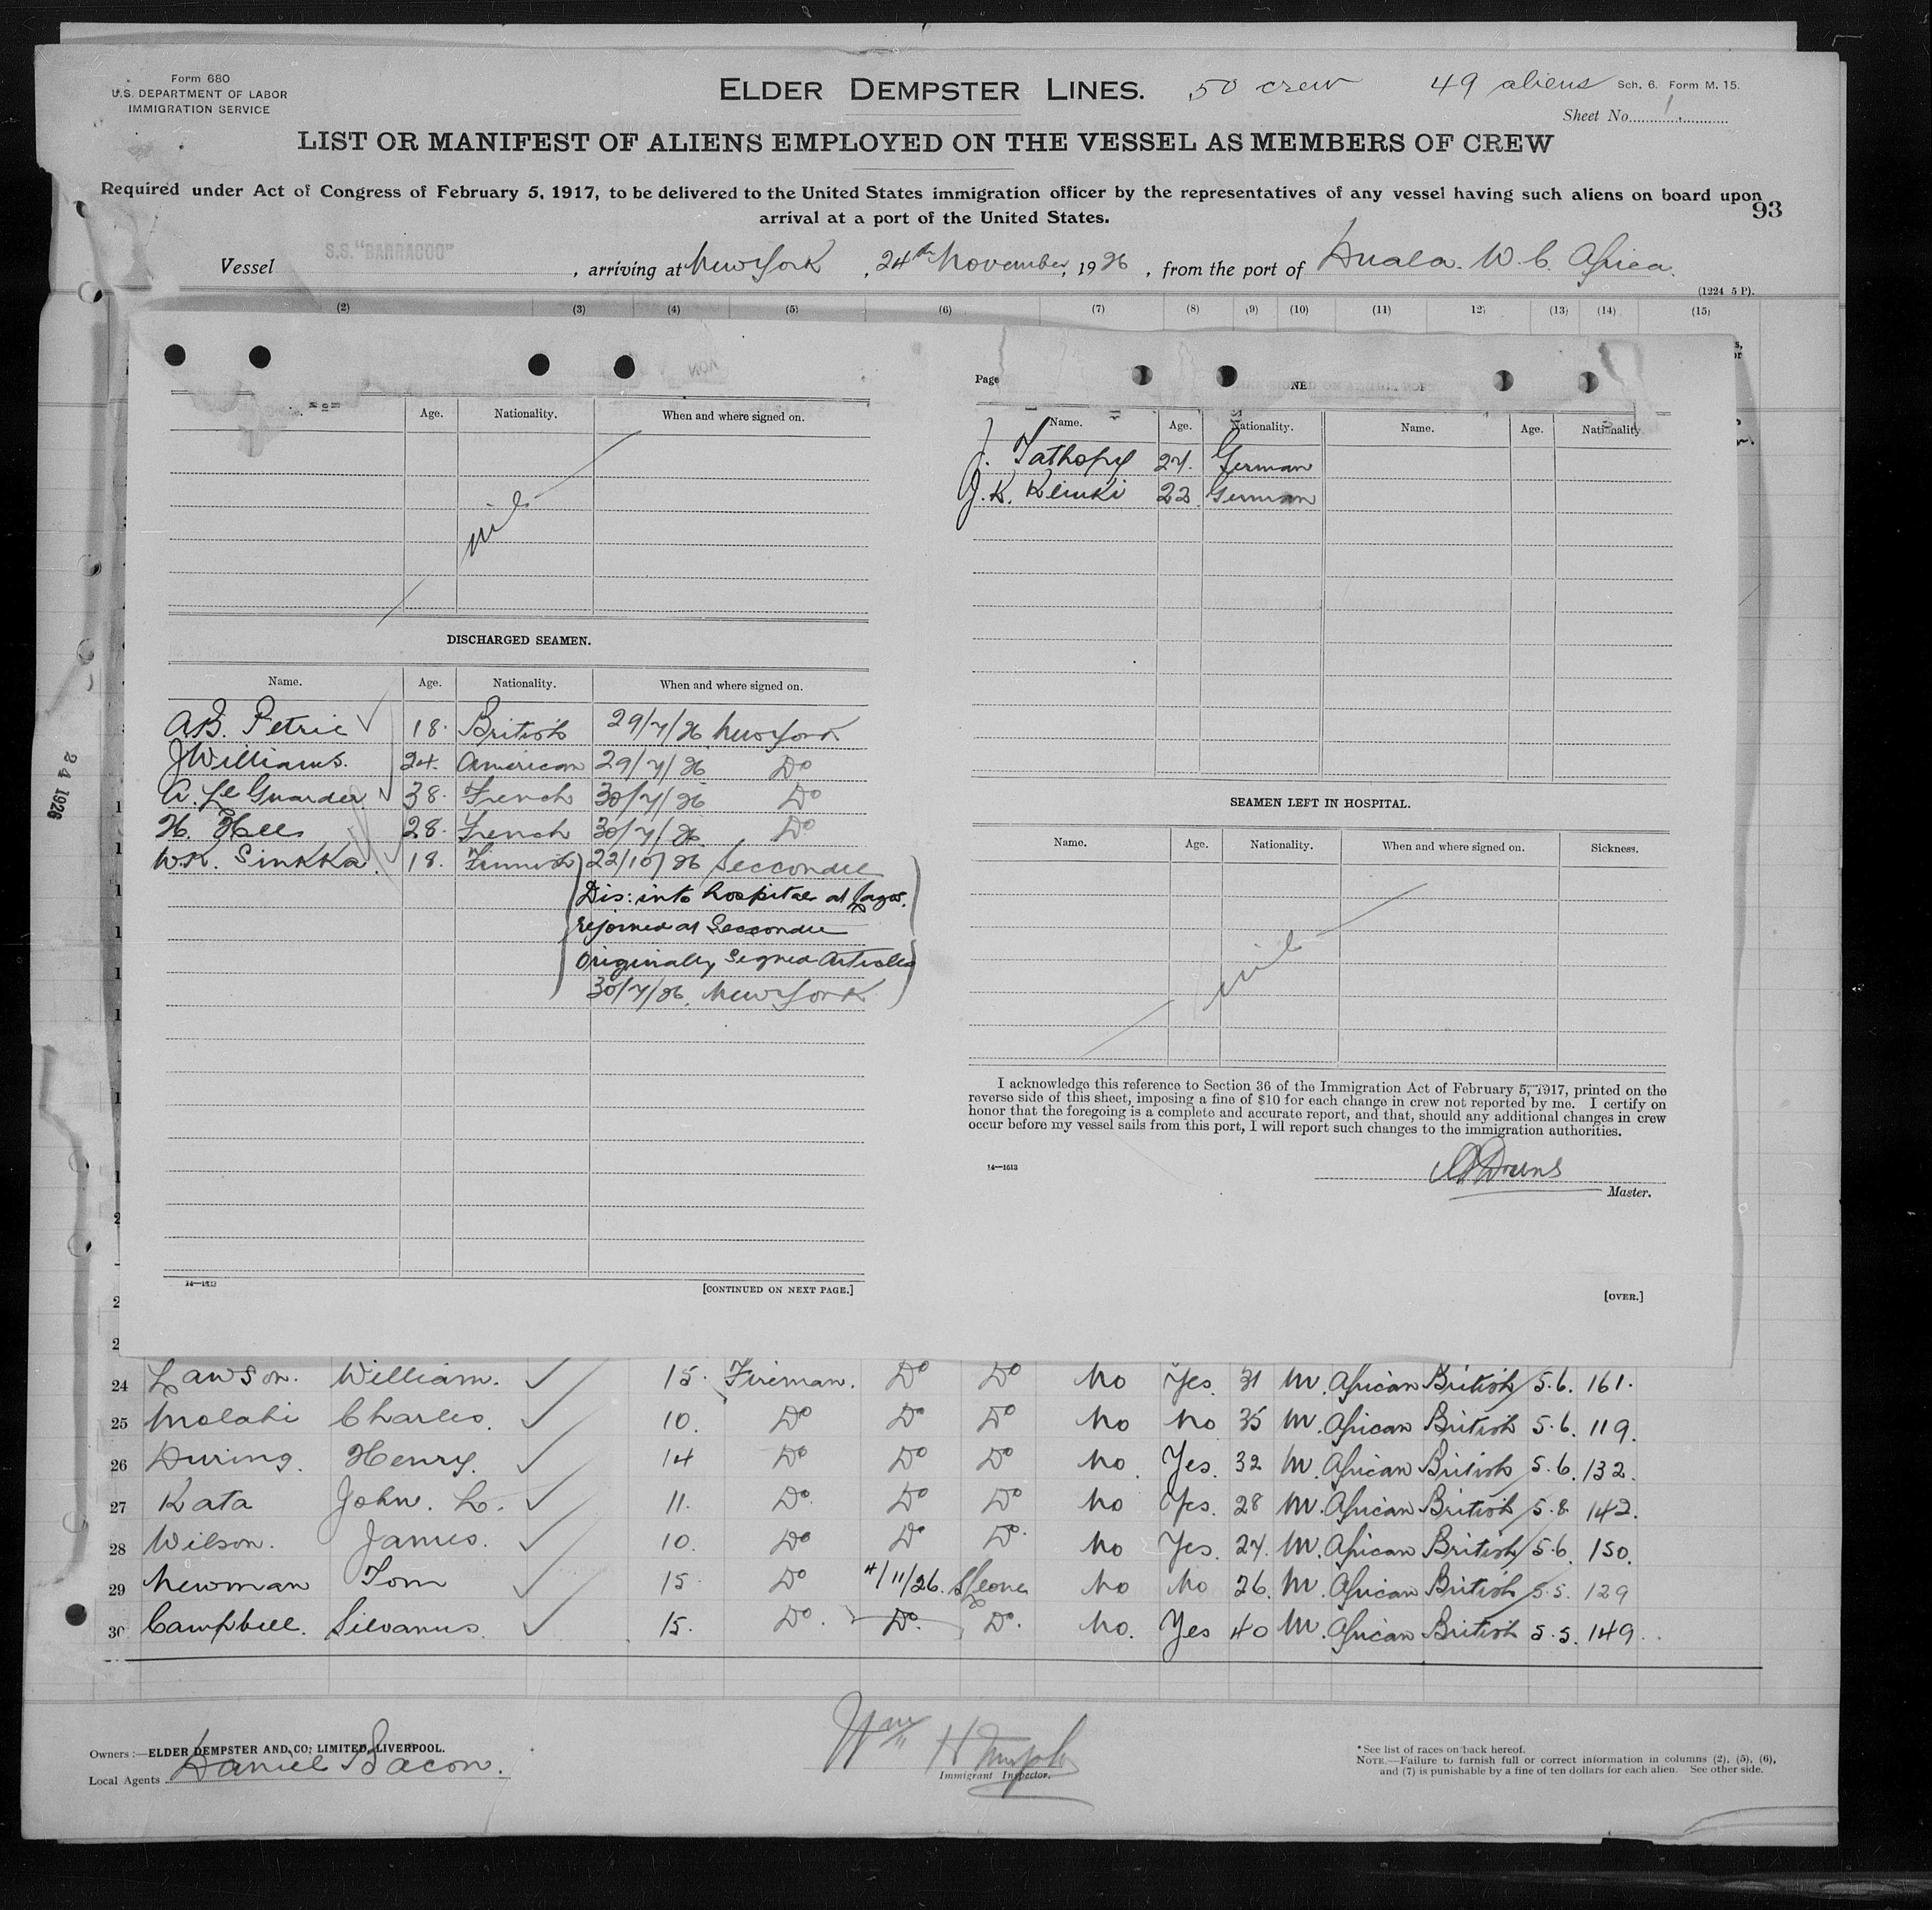 Form 680
U.S. DEPARTMENT OF LABOR
IMMIGRATION SERVICE
ELDER DEMPSTER LINES. 50 crew 49 aliens Sch. 6. Form M. 15.
Sheet No. 1
LIST OR MANIFEST OF ALIENS EMPLOYED ON THE VESSEL AS MEMBERS OF CREW
Required under Act of Congress of February 5, 1917, to be delivered to the United States immigration officer by the representatives of any vessel having such aliens on board upon
arrival at a port of the United States.
93
Vessel S.S. "BARRACOO" , arriving at New York , 24th November, 1926 , from the port of Duala. W. C. Africa.
(1224 5 P).
(2) (3) (4) (5) (6) (7) (8) (9) (10) (11) 12) (13) (14) (15)
Age. Nationality. When and where signed on.
nil
DISCHARGED SEAMEN.
Name. Age. Nationality. When and where signed on.
A.B. Petrie 18. British 29/7/26 New York
J Williams. 24. American 29/7/26 Do
A. Le Guarder 38. French 30/7/26 Do
H. Hells 28. French 30/7/26 Do
W.K. Sinkka. 18. Finnish 22/10/26 Seccondee
Dis: into hospital at Lagos.
rejoined at Seccondee
Originally Signed Articles
30/7/26. New York
14—1613
[CONTINUED ON NEXT PAGE.]
Page NE
Name. Age. Nationality. Name. Age. Nationality
J. 27. German
J.K. Klinki 22 German
SEAMEN LEFT IN HOSPITAL.
Name. Age. Nationality. When and where signed on. Sickness.
nil
I acknowledge this reference to Section 36 of the Immigration Act of February 5, 1917, printed on the
reverse side of this sheet, imposing a fine of $10 for each change in crew not reported by me. I certify on
honor that the foregoing is a complete and accurate report, and that, should any additional changes in crew
occur before my vessel sails from this port, I will report such changes to the immigration authorities.
14—1613
Master.
[OVER.]
24 1926
24 Lawson. William. 15. Fireman. Do Do No Yes. 31 M. African British 5.6. 161.
25 Malabi Charles. 10. Do Do Do No No 35 M. African British 5.6. 119.
26 During. Henry. 14 Do Do Do No. Yes. 32 M. African British 5.6. 132.
27 Kata John. L. 11. Do Do Do No Yes. 28 M. African British 5.8. 142.
28 Wilson. James. 10. Do Do Do. No Yes. 27. M. African British 5.6. 150.
29 Newman Tom 15 Do 4/11/26. S/Leone No No 26. M. African British 5.5. 129
30 Campbell. Silvanus. 15. Do. Do. Do. No. Yes 40 M. African British 5.5. 149.
Owners:—ELDER DEMPSTER AND CO; LIMITED, LIVERPOOL.
Local Agents Daniel Bacon.
Wm H Temple
Immigrant Inspector.
*See list of races on back hereof.
NOTE.—Failure to furnish full or correct information in columns (2), (5), (6),
and (7) is punishable by a fine of ten dollars for each alien. See other side.